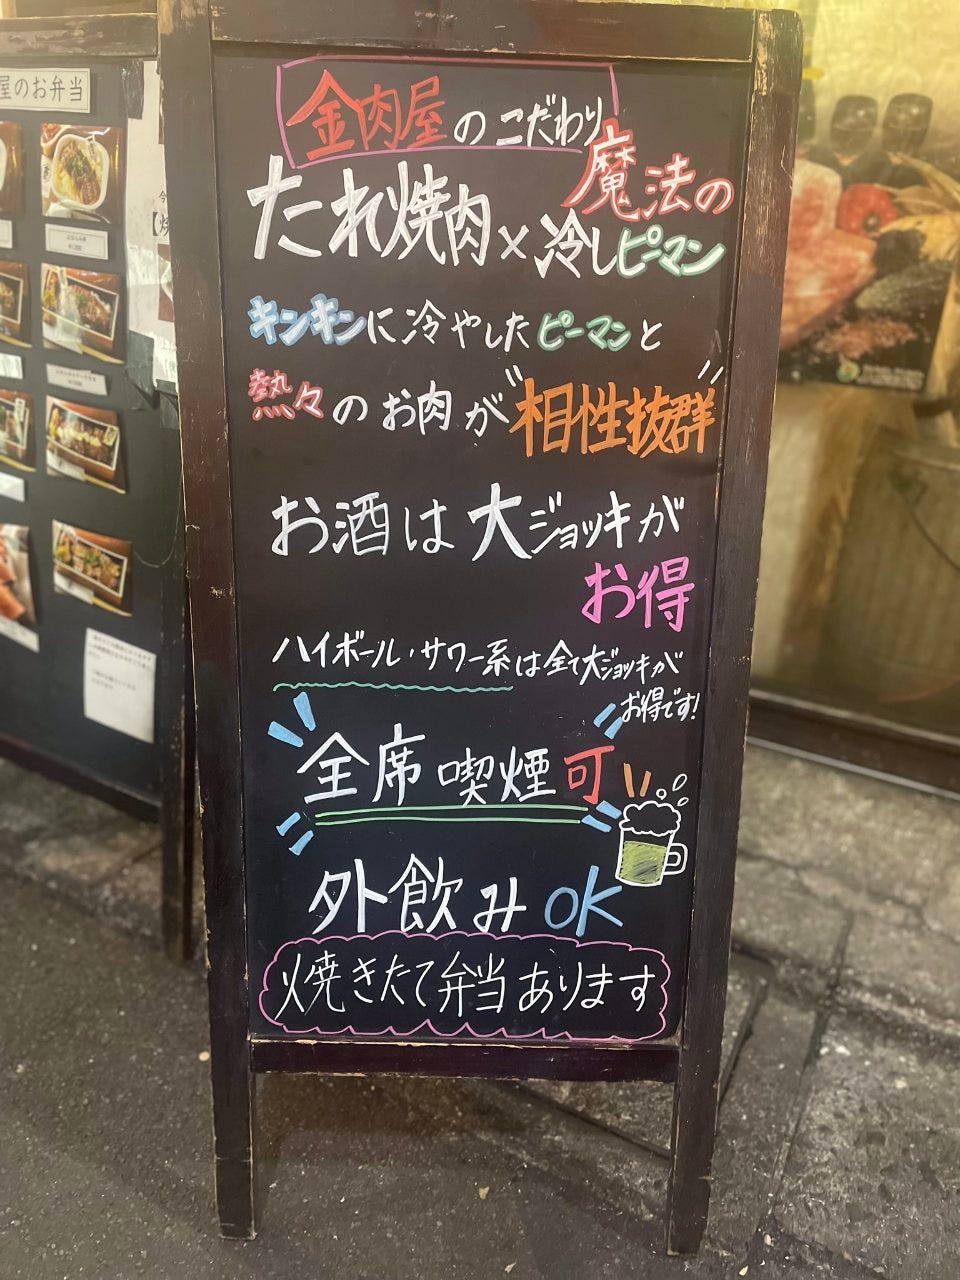 屋のお弁当
金肉屋のこだわり
たれ焼肉×魔法の冷しピーマン
キンキンに冷やしたピーマンと
熱々のお肉が"相性抜群"
お酒は大ジョッキが
お得
ハイボール・サワー系は全て大ジョッキが
お得です!
全席喫煙可
外飲みOK
焼きたて弁当あります